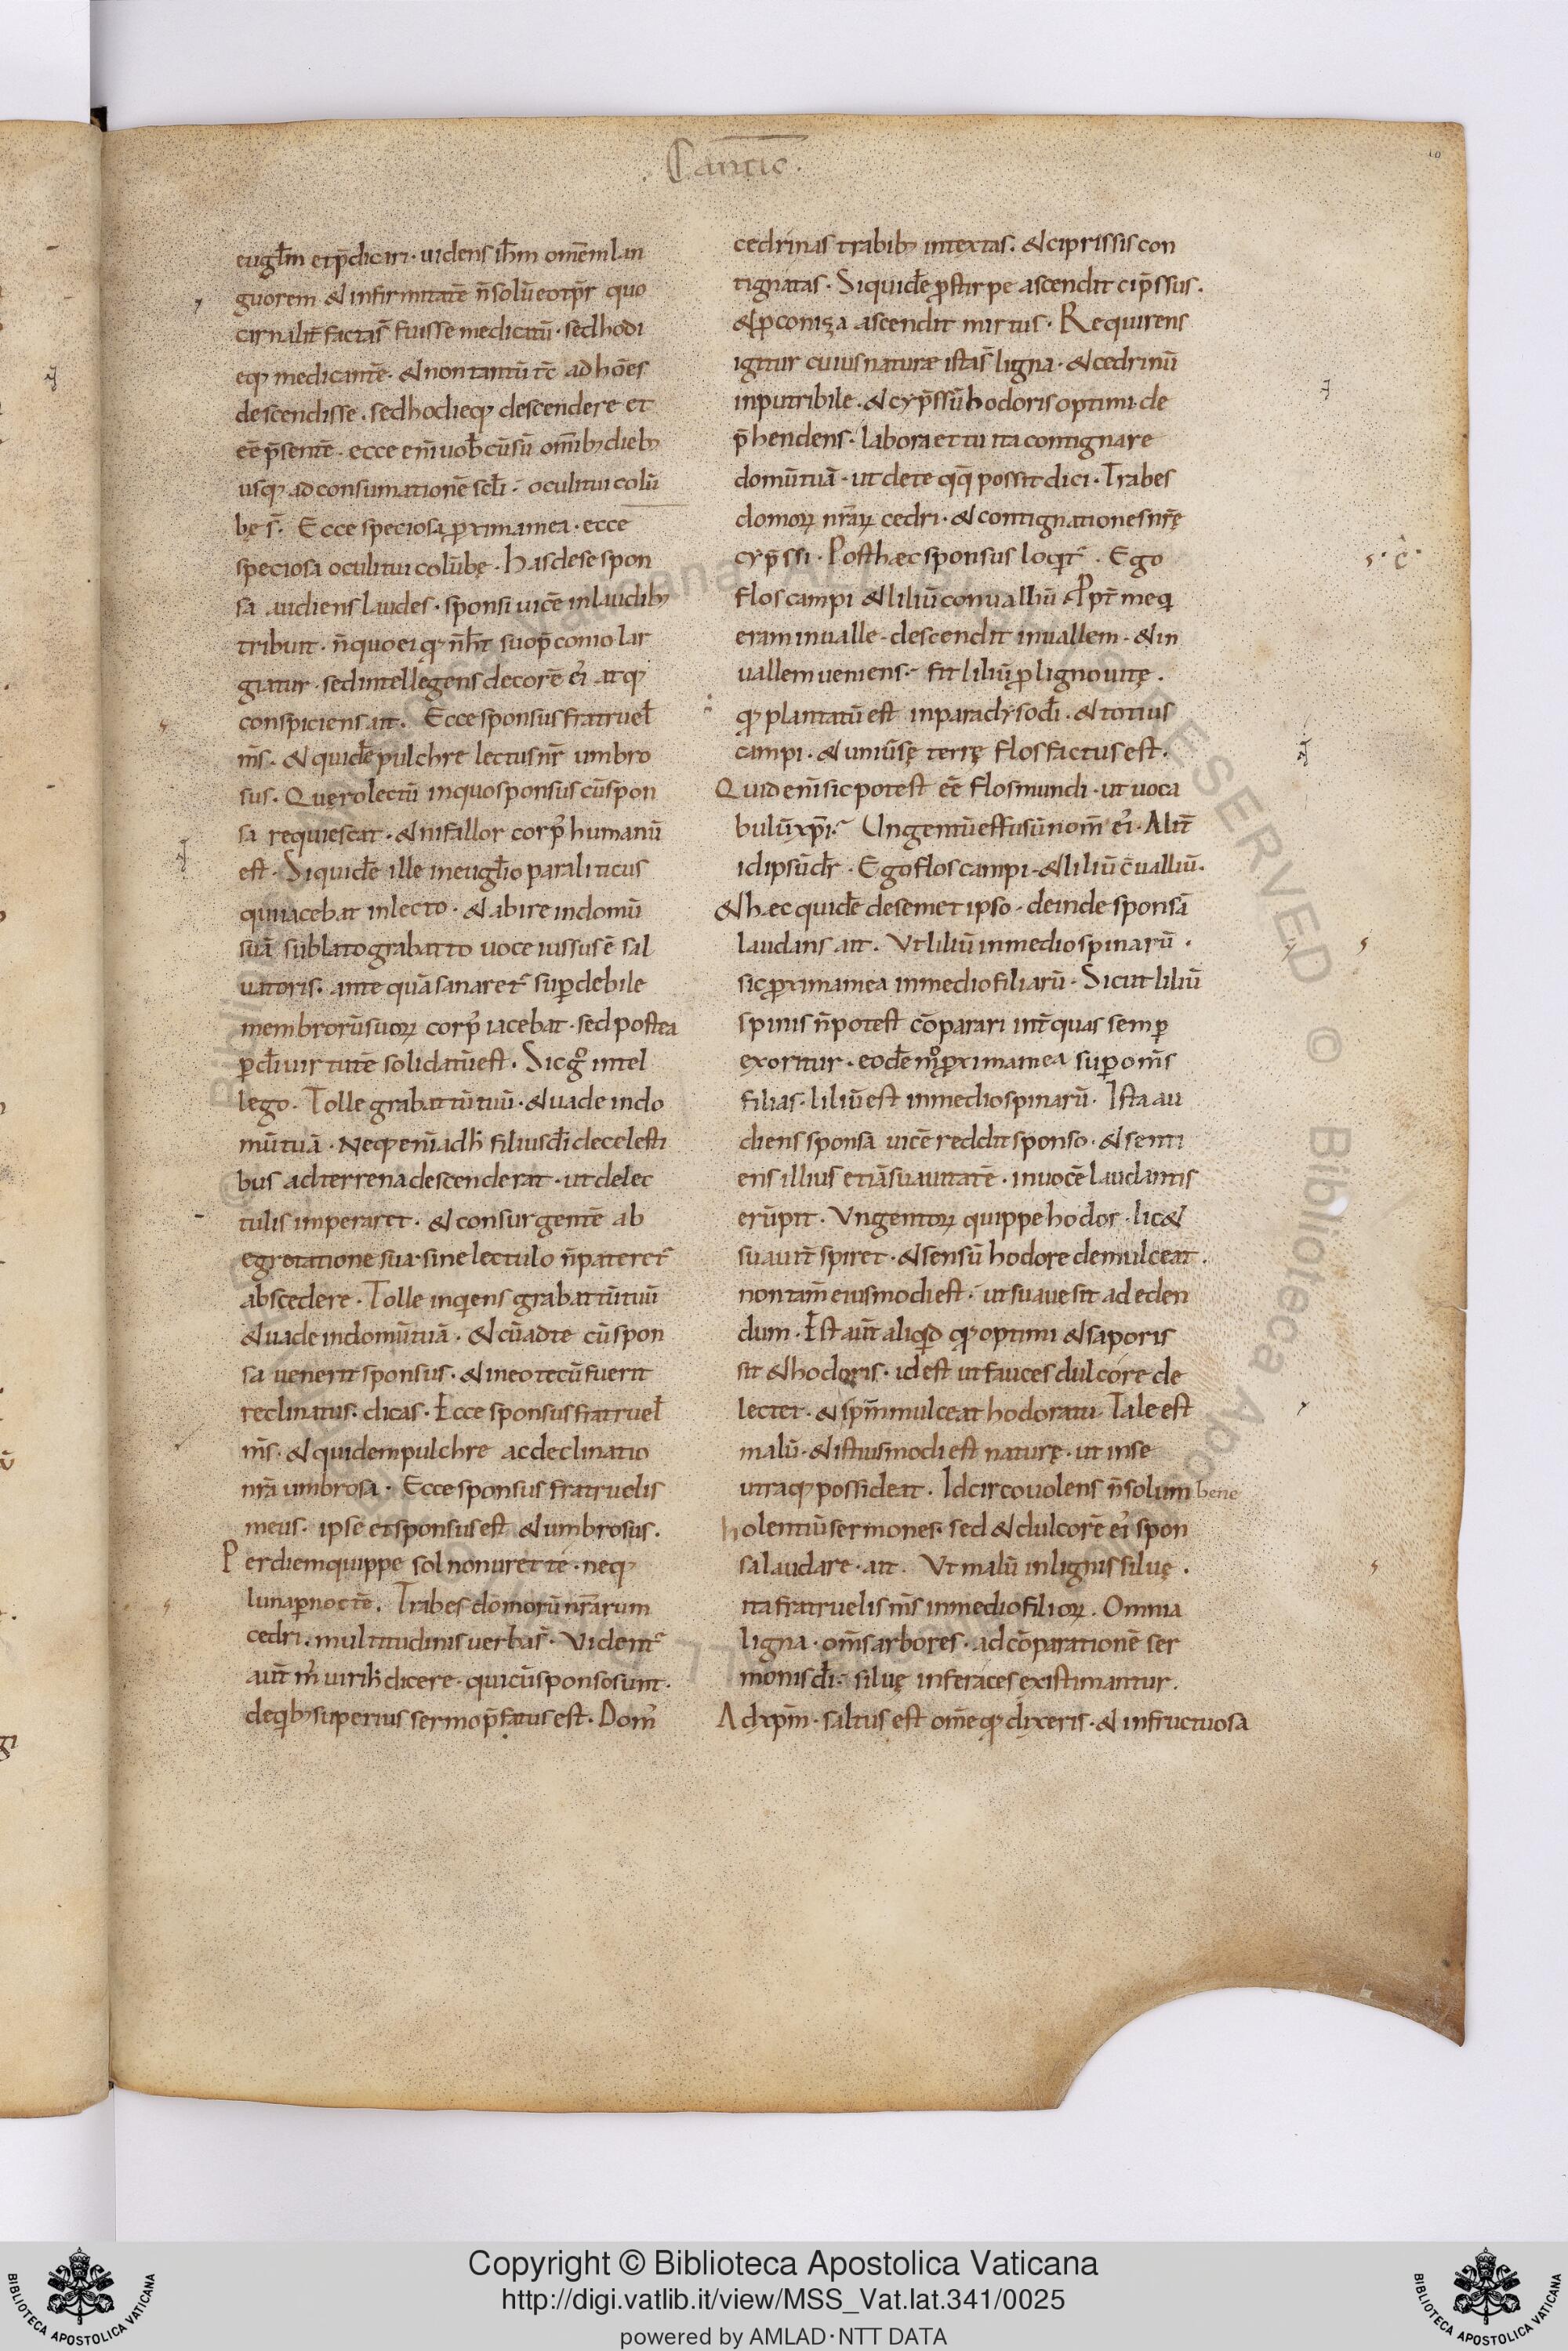 . Cantic̄ .
10
eugl̄m et p̄dicari · uidens ih̄m om̄em lan
guorem & infirmitatē n̄ solū eo tp̄r quo
carnalit̄ facta s̄ fuisse medicatū · sed hodi
eq; medicantē · & non tantū tc̄ ad hoēs
descendisse . sed hodieq; descendere et
eē p̄sentē · ecce eni᷑ uob̄ cū sū om̄ib; dieb;
usq; ad consumationē scl̄i · oculi tui colū
bę s̄ · Ecce speciosa ꝓxima mea · ecce
speciosa oculi tui colūbę · Has de se spon
sa audiens laudes · sponsi uicē in laudib;
tribuit · n̄ quo ei qḋ n̄ hēt suo p̄conio lar
giatur · sed intellegens decorē ei᷑ atq;
conspiciens ait . Ecce sponsus fratruel̄
m̄s · & quidē pulchre lectus nr̄ umbro
sus · Quęro lectū in quo sponsus cū spon
sa requiescat · & ni fallor corp᷑ humanū
est · Siquidē ille in eugl̄io paraliticus
qui iacebat in lecto · & abire in domū
suā sublato grabatto uoce iussus ē sal
uatoris · ante quā sanaret᷑ sup debile
membrorū suoꝝ corp᷑ iacebat · sed postea
ꝑ dī uirtutē solidatū est · Sic g᷑ intel
lego · Tolle grabattū tuū · & uade in do
mū tuā · Neq; eni᷑ adh̄ filius dī de celesti
bus ad terrena descenderat · ut de lec
tulis imperaret · & consurgentē ab
egrotatione sua sine lectulo n̄ pateret᷑
abscedere · Tolle inqiens grabattū tuū
& uade in domū tuā · & cū ad te cū spon
sa uenerit sponsus · & in eo tecū fuerit
reclinatus · dicas · Ecce sponsus fratruel̄
m̄s · & quidem pulchre ac declinatio
nr̄a umbrosa · Ecce sponsus fratruelis
meus · ipse et sponsus est & umbrosus .
Per diem quippe sol non uret te · neq;
luna ꝑ noctē . Trabes domorū nr̄arum
cedri . multitudinis uerba s̄ · Vident᷑
aūt m᷑ uiri h̄ dicere · qui cū sponso sunt ·
de qib; superius sermo p̄fatus est · Dom᷑
cedrinas trabib; intextas . & ciprissis con
tignatas · Siquidē ꝓ stirpe ascendit cip̄ssus .
& ꝓ coniza ascendit mirtus · Requirens
igitur cuius naturæ ista s̄ ligna · & cedrinū
inputribile · & cyp̄ssū hodoris optimi de
p̄hendens · labora et tu ita contignare
domū tuā · ut de te qq̄ possit dici · Trabes
domoꝝ nr̄aꝝ cedri · & contignationes nr̄ę
cyp̄ssi · Post hæc sponsus loqit᷑ · Ego
flos campi & liliū conualliū · Ppt̄ me qi
eram in ualle · descendit in uallem · & in
uallem ueniens · fit liliū ꝓ ligno uitę .
qḋ plantatū est in paradyso dī · & totius
campi · & uniūsę terrę flos factus est ·
Quid eni᷑ sic potest eē flos mundi · ut uoca
bulū xp̄i · Ungentū effusū nom̄ ei᷑ · Alit̄
id ipsū dr̄ · Ego flos campi · & liliū c̄ualliū ·
& hæc quidē de semet ipso · deinde sponsā
laudans ait . Vt liliū in medio spinarū ·
sic ꝓxima mea in medio filiarū · Sicut liliū
spinis n̄ potest cōparari int̄ quas semꝑ
exoritur · eodē m̊ ꝓxima mea suꝑ om̄s
filias · liliū est in medio spinarū · Ista au
diens sponsa uicē reddit sponso · & senti
ens illius etiā suauitatē · in uocē laudantis
erūpit · Vngentoꝝ quippe hodor · lic&
suauit̄ spiret · & sensū hodore demulceat .
non tam̄ eiusmodi est · ut suaue sit ad eden
dum · Est aūt aliqid qḋ optimi & saporis
sit & hodoris · id est ut fauces dulcore de
lectet · & sp̄m mulceat hodoratu · Tale est
malū · & istiusmodi est naturę · ut in se
utraq; possideat . Idcirco uolens n̄ solum bene
holentiū sermones · sed & dulcorē ei᷑ spon
sa laudare · ait . Vt malū in lignis siluę .
ita fratruelis m̄s in medio filioꝝ . Omnia
ligna · om̄s arbores · ad cōparationē ser
monis dī · siluę inferaces existimantur .
Ad xp̄m · saltus est om̄e qḋ dixeris · & infructuosa
Copyright © Biblioteca Apostolica Vaticana
http://digi.vatlib.it/view/MSS_Vat.lat.341/0025
powered by AMLAD·NTT DATA
BIBLIOTECA APOSTOLICA VATICANA
BIBLIOTECA APOSTOLICA VATICANA